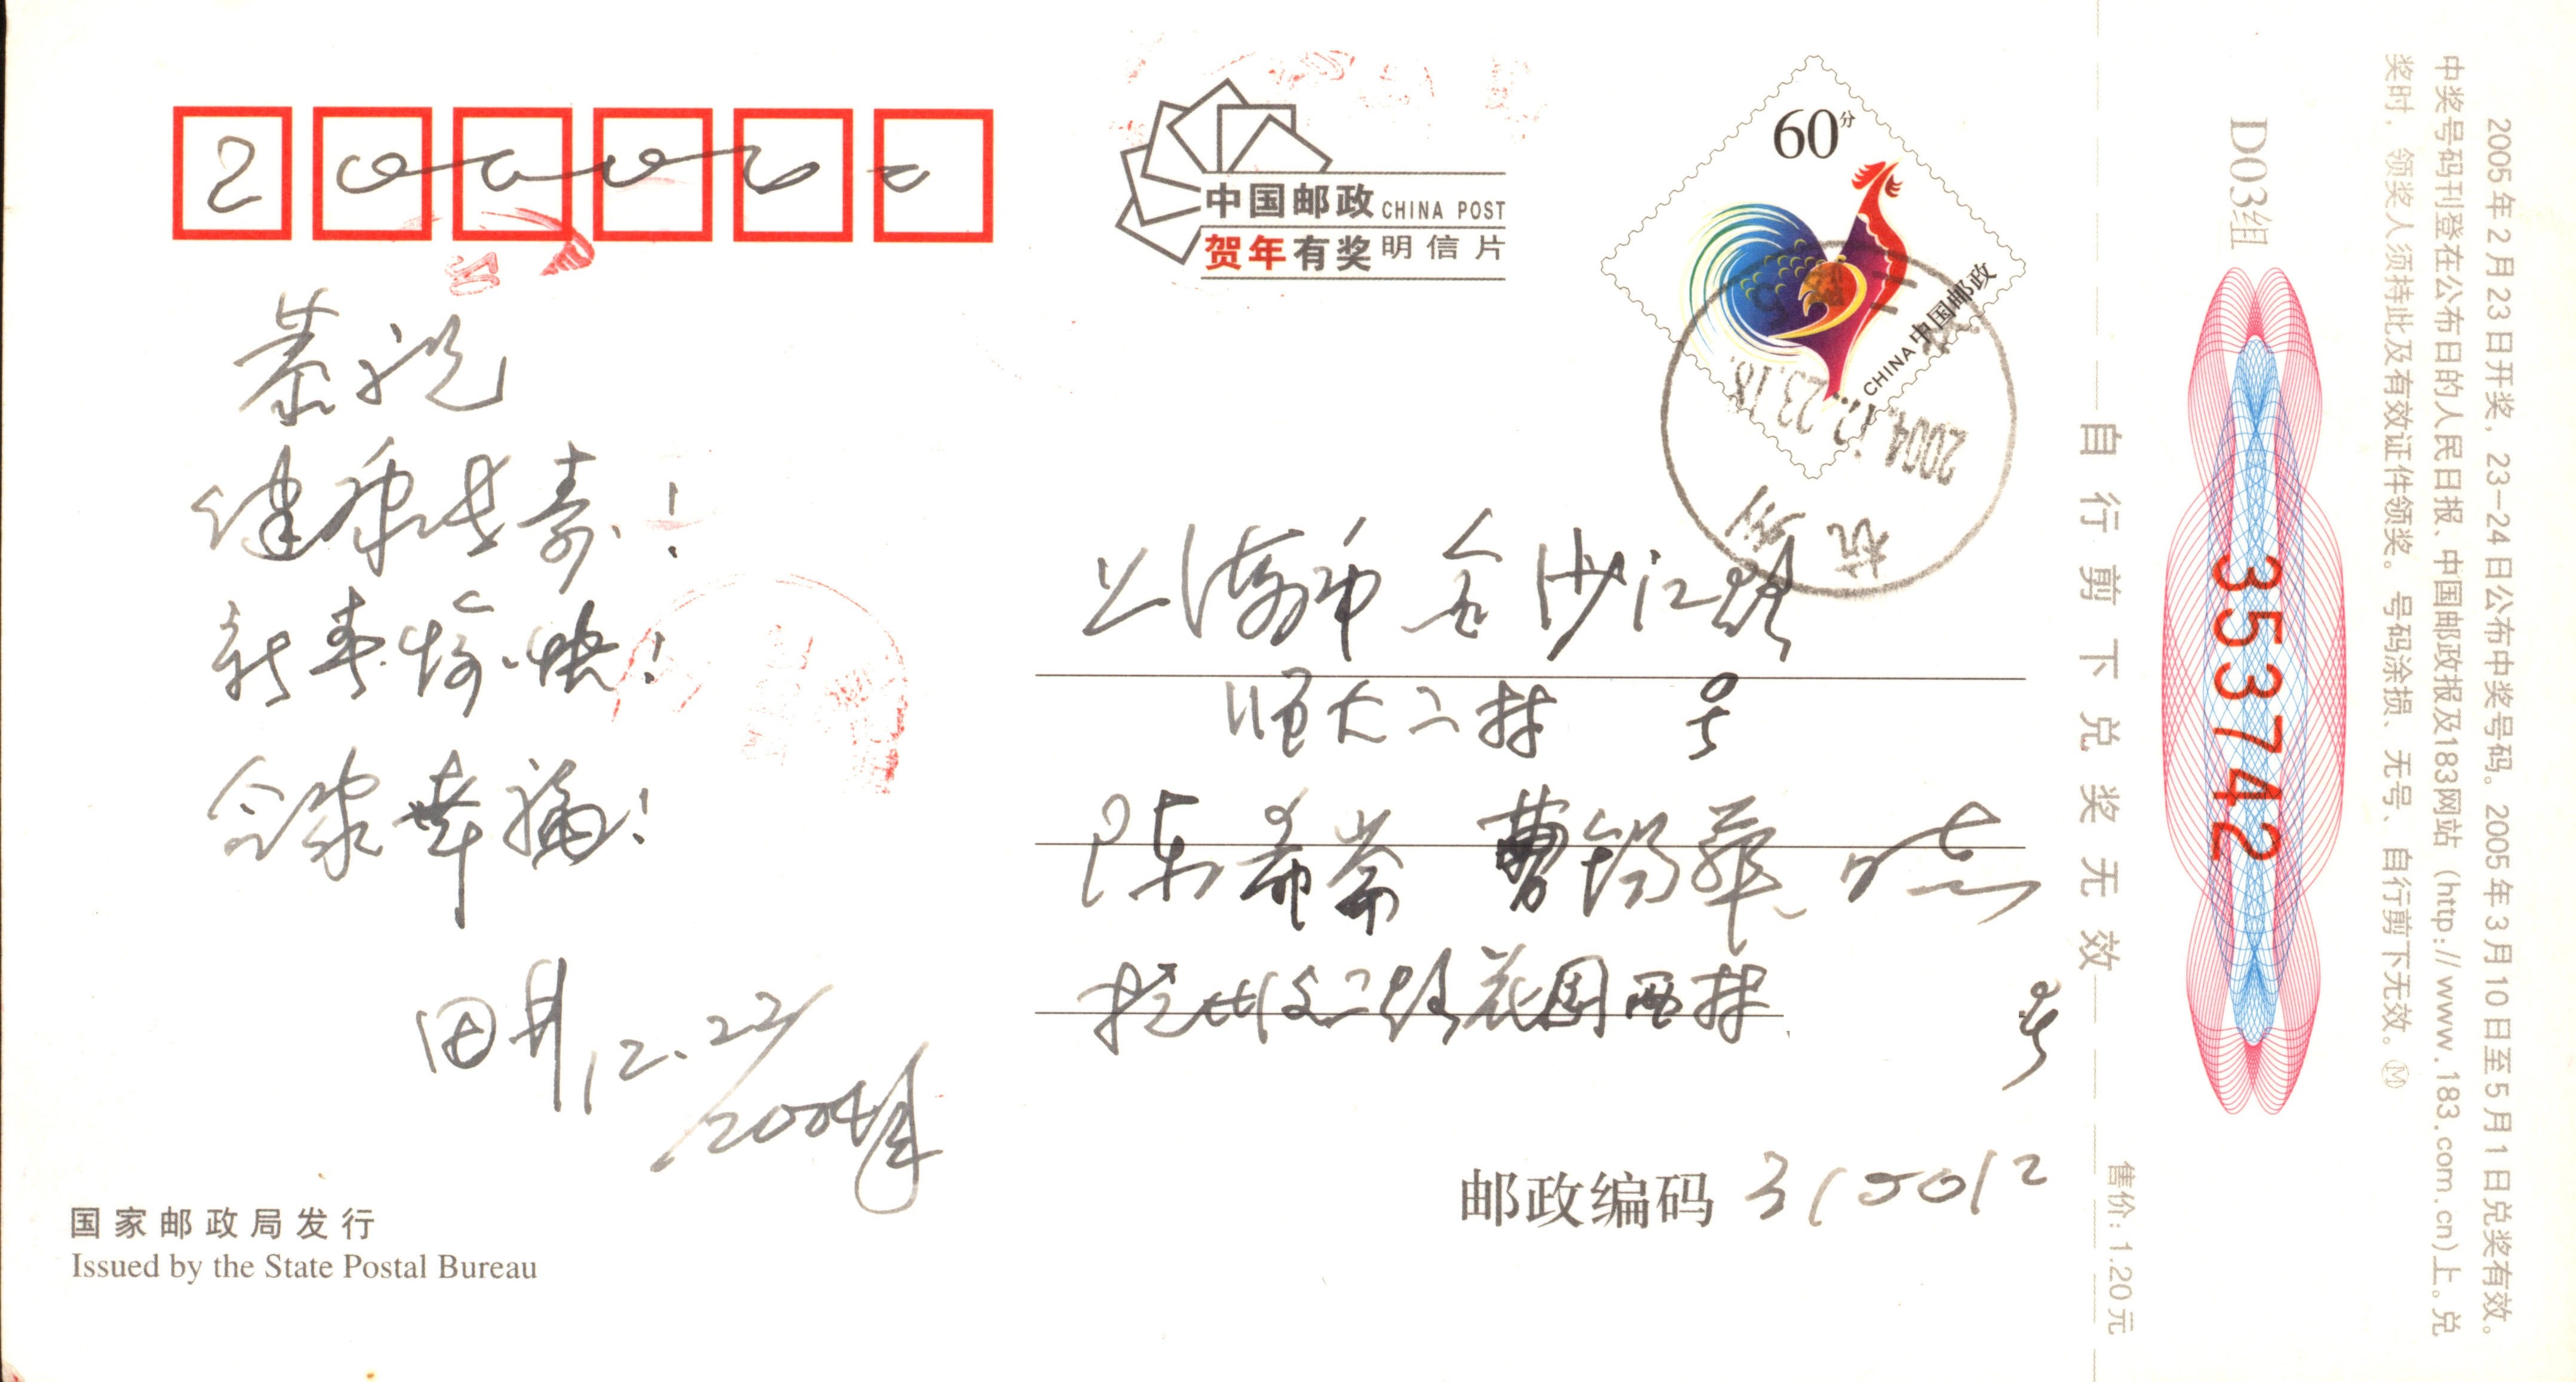 200062
恭祝
健康长寿!
新春愉快!
合家幸福!
田井 12.22
2004年
国家邮政局发行
Issued by the State Postal Bureau
中国邮政 CHINA POST
贺年有奖明信片
60分
中国邮政
CHINA
2004.12.23.18
杭州
上海市金沙江路
师大二村 号
陈希 曹锡华
杭州文二路花园西村
号
邮政编码 310012
自行剪下兑奖无效
售价:1.20元
D03组
353742
2005年2月23日开奖,23-24日公布中奖号码。2005年3月10日至5月1日兑奖有效。
中奖号码刊登在公布日的人民日报、中国邮政报及183网站(http://www.183.com.cn)上。兑
奖时,领奖人须持此及有效证件领奖。号码涂损、无号、自行剪下无效。Ⓜ